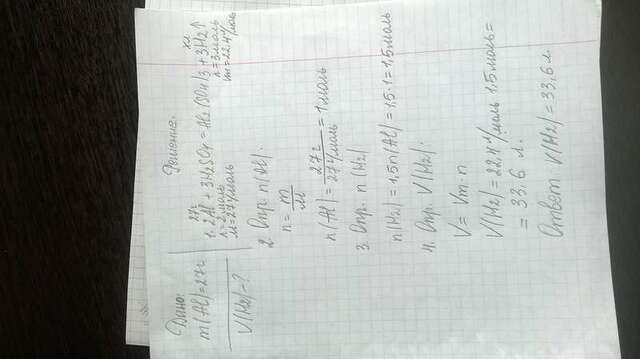 Дано:
m(Al)=27г
V(H2)=?
Решение.
27г хл
1. 2Al + 3H2SO4 = Al2(SO4)3 + 3H2↑
n=2моль n=3моль
M=27г/моль Vm=22.4л/моль
2. Опр. n(Al).
n = m/M
n(Al) = 27г/27г/моль = 1моль
3. Опр. n(H2)
n(H2)=1,5n(Al)=1,5·1=1,5моль
4. Опр. V(H2).
V = Vm · n
V(H2)=22.4л/моль 1,5моль=
= 33.6 л.
Ответ V(H2)=33,6л.